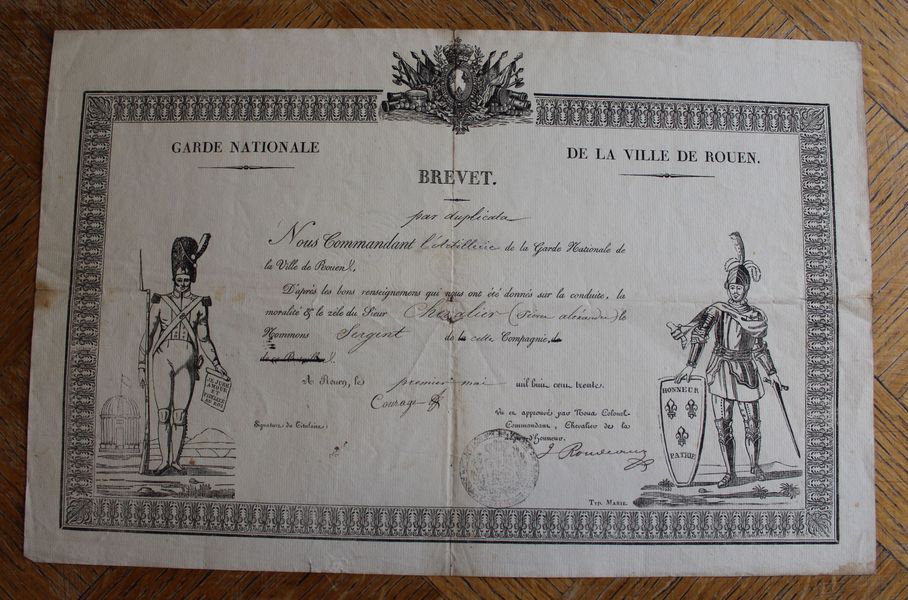 GARDE NATIONALE
DE LA VILLE DE ROUEN.
BREVET.
par duplicata
Nous Commandant l'Artillerie de la Garde Nationale de
la Ville de Rouen,
D'après les bons renseignemens qui nous ont été donnés sur la conduite, la
moralité & le zèle du Sieur Chevalier (Pierre alexandre) le
Nommons Sergent de la cette Compagnie,
A Rouen, le premier mai mil huit cent trente.
Courage
Vu et approuvé par Nous Colonel
Signature du Titulaire:
Commandant, Chevalier de la
Légion d'Honneur.
JE JURE
AMOUR
ET
FIDÉLITÉ
AU ROI
HONNEUR
PATRIE
Typ. MARIE.